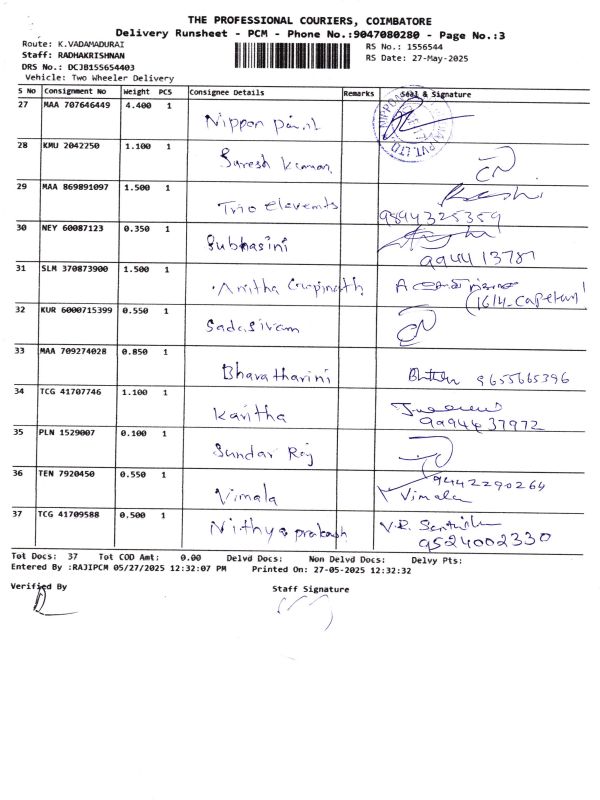 THE PROFESSIONAL COURIERS, COIMBATORE
Delivery Runsheet - PCM - Phone No.:9047080280 - Page No.:3
Route: K.VADAMADURAI
RS No.: 1556544
Staff: RADHAKRISHNAN
RS Date: 27-May-2025
DRS No.: DCJB155654403
Vehicle: Two Wheeler Delivery
S No Consignment No Weight PCS Consignee Details Remarks Seal & Signature
27 MAA 707646449 4.400 1 Nippon paint
28 KMU 2042250 1.100 1 Suresh Kumar
29 MAA 869891097 1.500 1 Trio elevemts 9894325359
30 NEY 60087123 0.350 1 Subhasini 994413781
31 SLM 370873900 1.500 1 Anitha
32 KUR 6000715399 0.550 1 Sadasivam
33 MAA 709274028 0.850 1 Bharatharini 9655665396
34 TCG 41707746 1.100 1 Kavitha 9994437972
35 PLN 1529007 0.100 1 Sundar Raj
36 TEN 7920450 0.550 1 Vimala 9442290264 Vimala
37 TCG 41709588 0.500 1 Nithya prakash 9524002330
Tot Docs: 37 Tot COD Amt: 0.00 Delvd Docs: Non Delvd Docs: Delvy Pts:
Entered By :RAJIPCM 05/27/2025 12:32:07 PM Printed On: 27-05-2025 12:32:32
Verified By Staff Signature